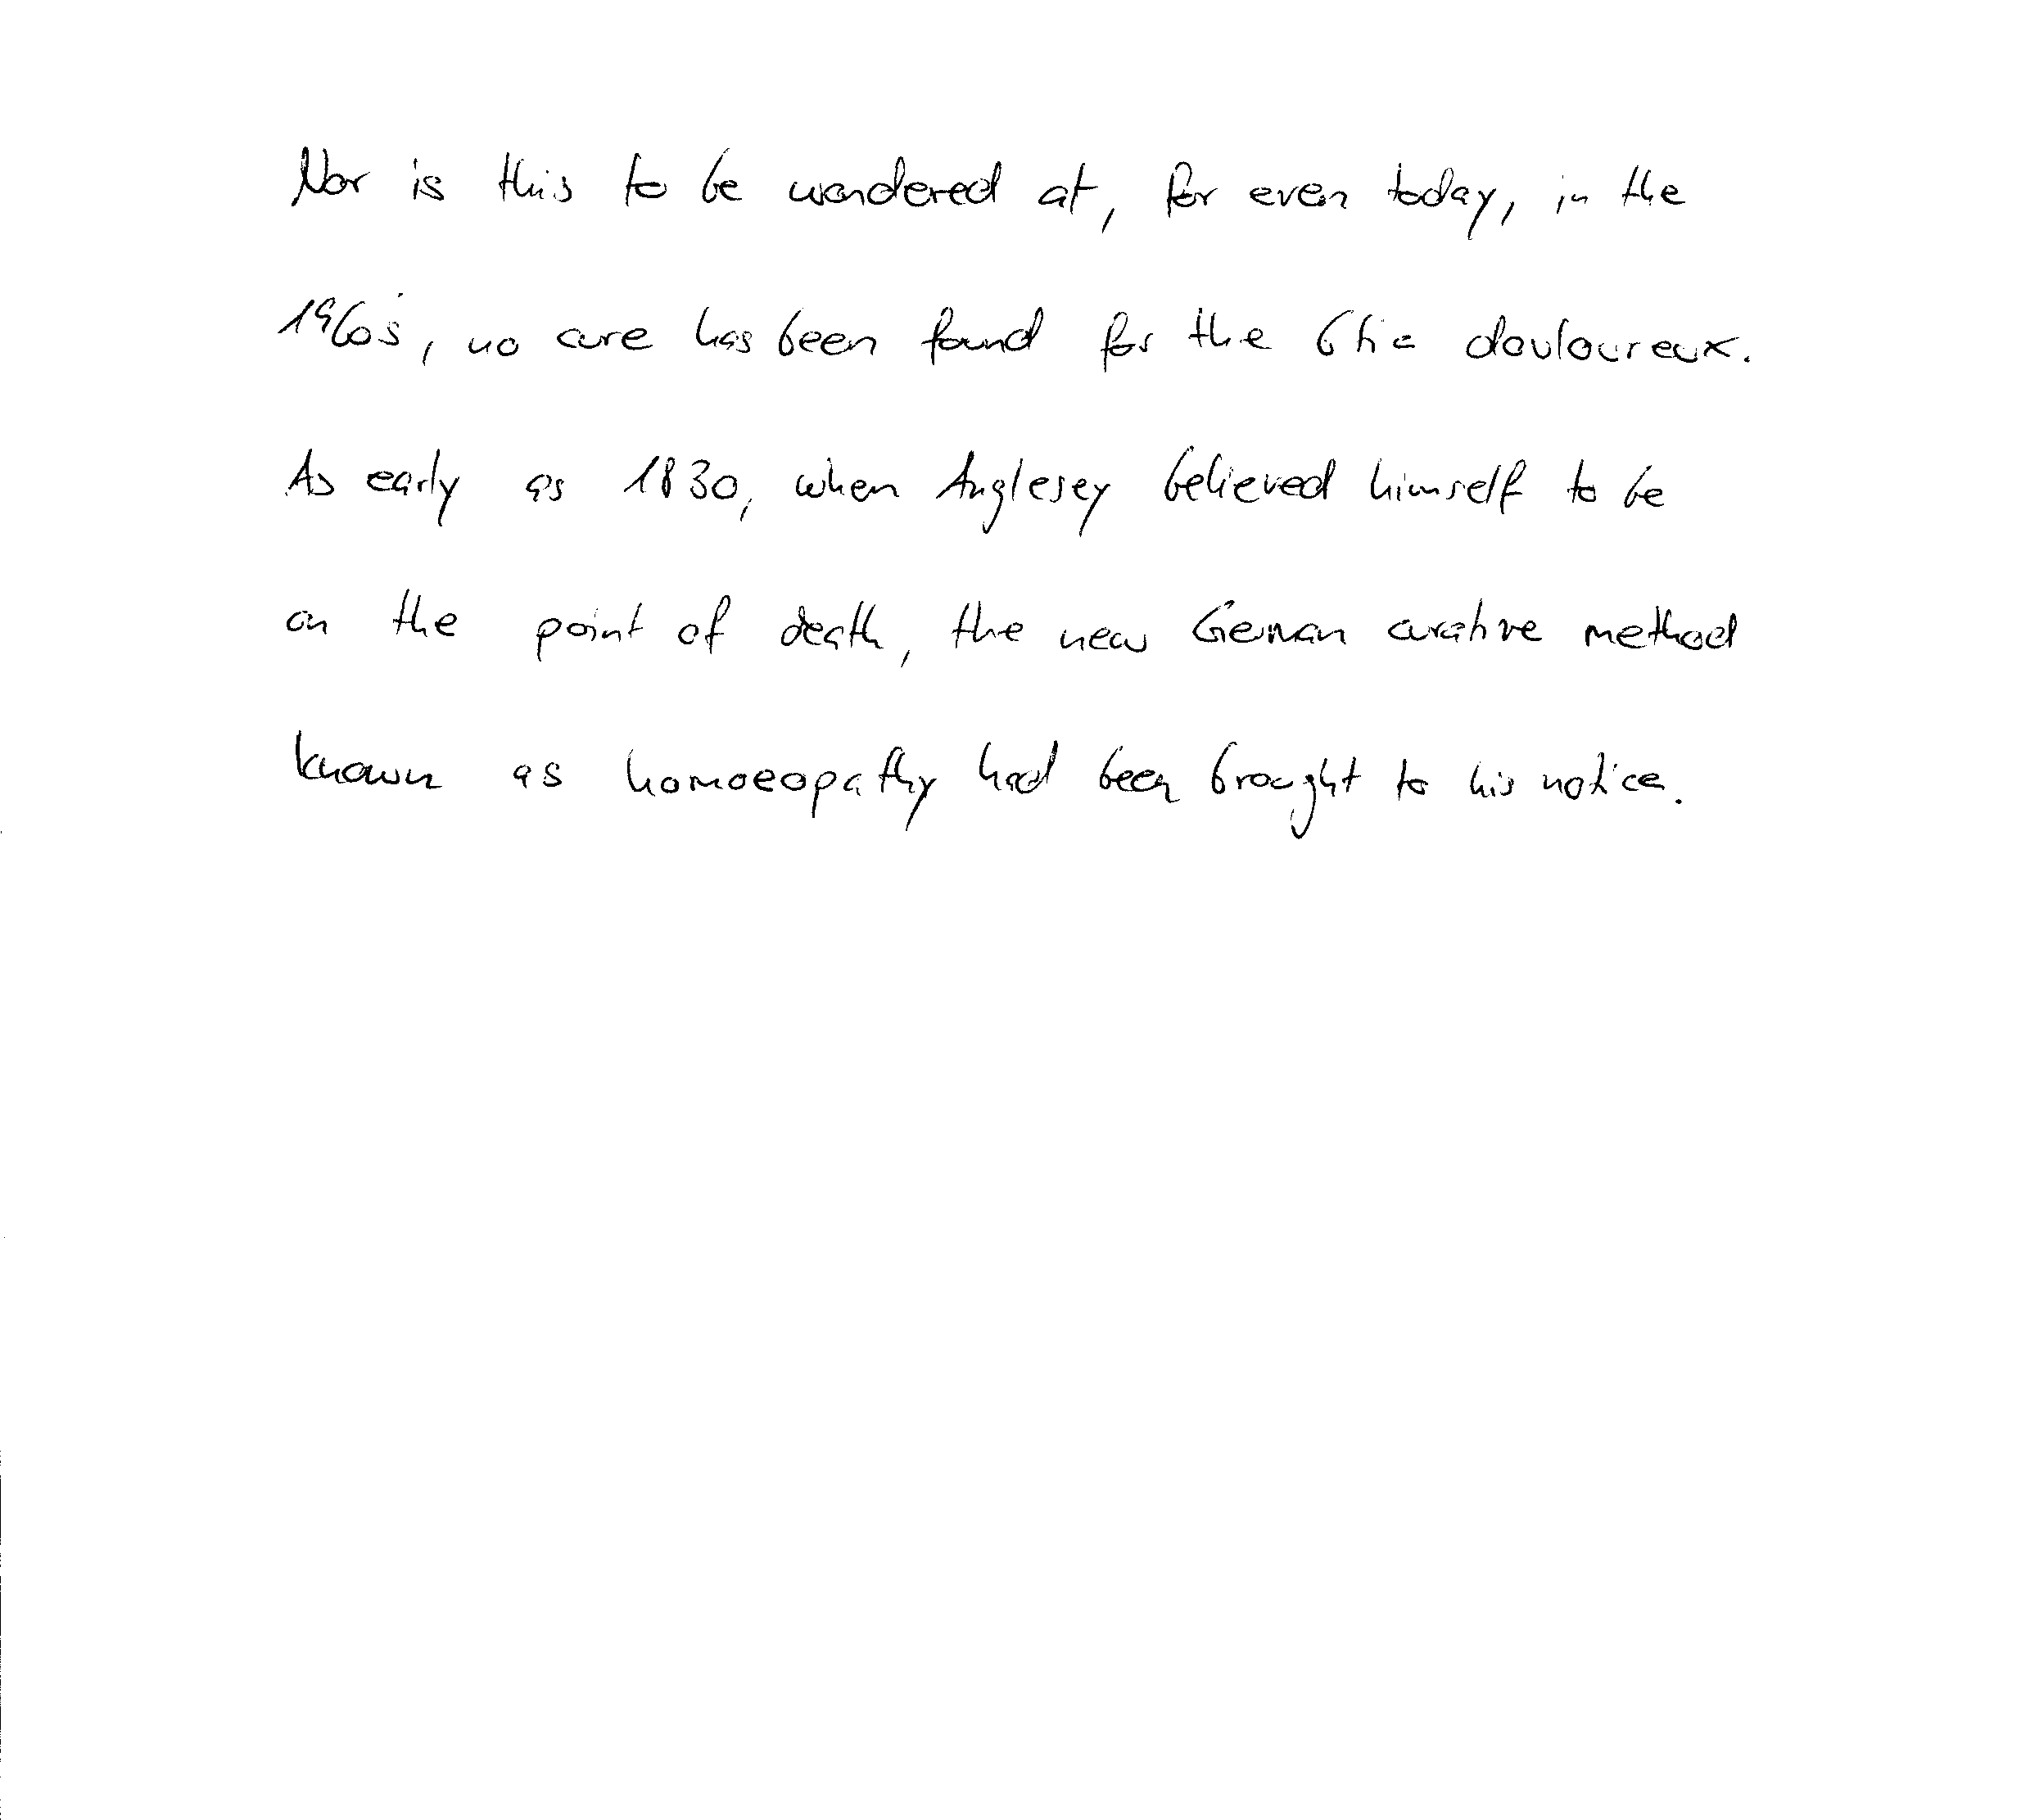 Nor is this to be wondered at, for even today, in the
1960's, no cure has been found for the tic douloureux.
As early as 1830, when Anglesey believed himself to be
on the point of death, the new German curative method
known as homoeopathy had been brought to his notice.